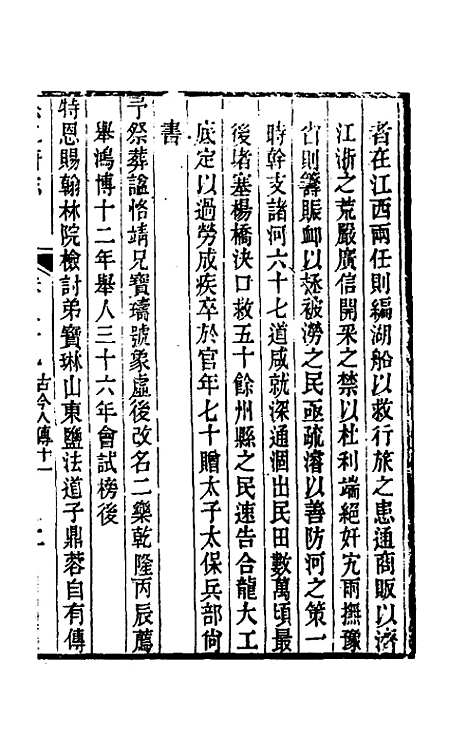 者在江西兩任則編湖船以救行旅之患通商販以濟
江浙之荒嚴廣信開采之禁以杜利端絕奸宄兩撫豫
省則籌賑卹以拯被澇之民亟疏濬以善防河之策一
時幹支諸河六十七道咸就深通涸出民田數萬頃最
後堵塞楊橋決口救五十餘州縣之民速告合龍大工
底定以過勞成疾卒於官年七十贈太子太保兵部尙
書
予祭葬諡恪靖兄寶瑔號象虛後改名二樂乾隆丙辰薦
舉鴻博十二年舉人三十六年會試榜後
特恩賜翰林院檢討弟寶琳山東鹽法道子鼎蓉自有傳
古今人傳十一